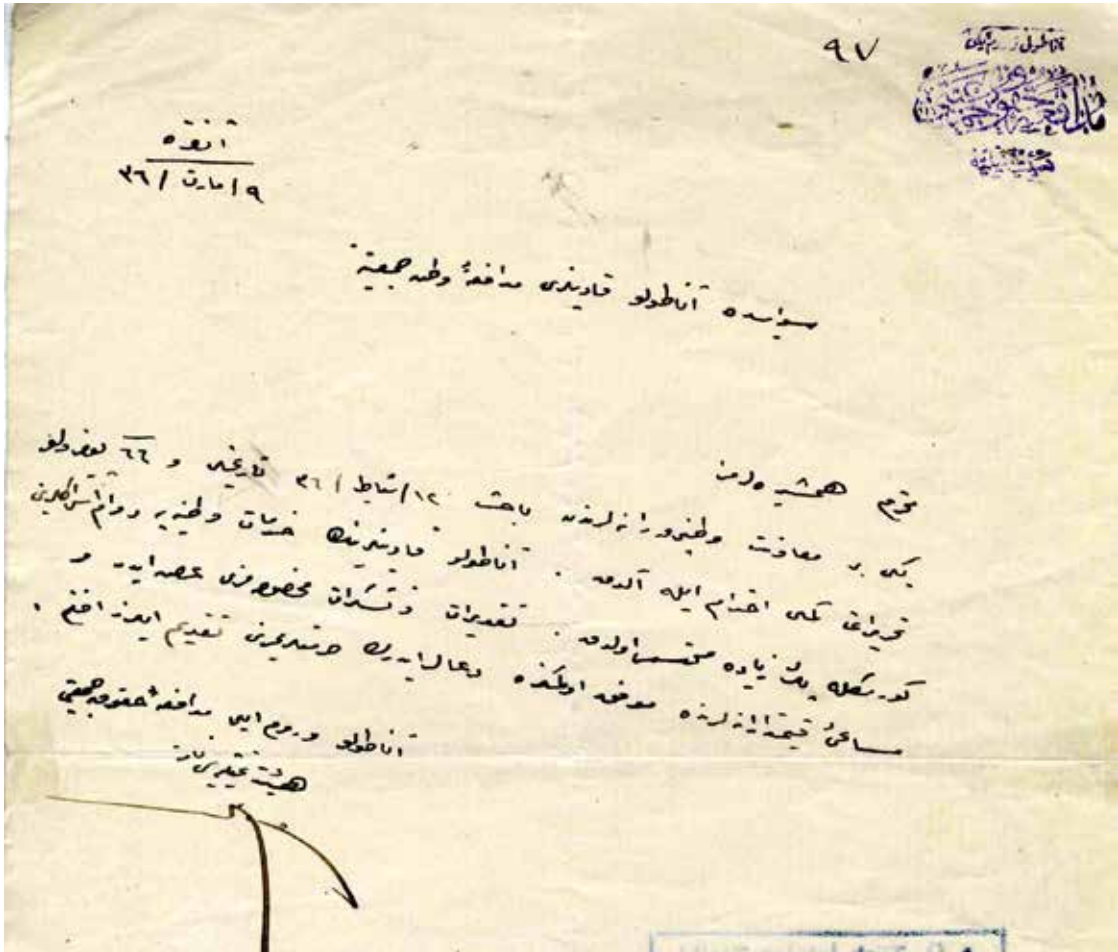 ٩٧
آنقره
٩/مارت/٣٦
سيواسده آناطولو قادينلرى مدافعهٔ وطن جمعيتنه
محترم همشيره لرمز
يكى بر معاونت وطنپرورانه لرندن باحث ١٢/شباط/٣٦ تاريخلى و ٦٦ نومرولو
تحريراتى كمال احترام ايله آلدق . آناطولو قادينلرينك خدمات وطنيه يه دوام ايتدكلرينى
كورمكله پك زياده متحسس اولدق . تقديرات و تشكرات مخصوصه مزى عرض ايدر و
مساعئ قيمتدارانه لرنده موفق اولمكزه دعالر ايدرك حرمتلريمزى تقديم ايلرز افندم .
آناطولو و روم ايلى مدافعهٔ حقوق جمعيتى
هيئت تمثيليه سى نامنه